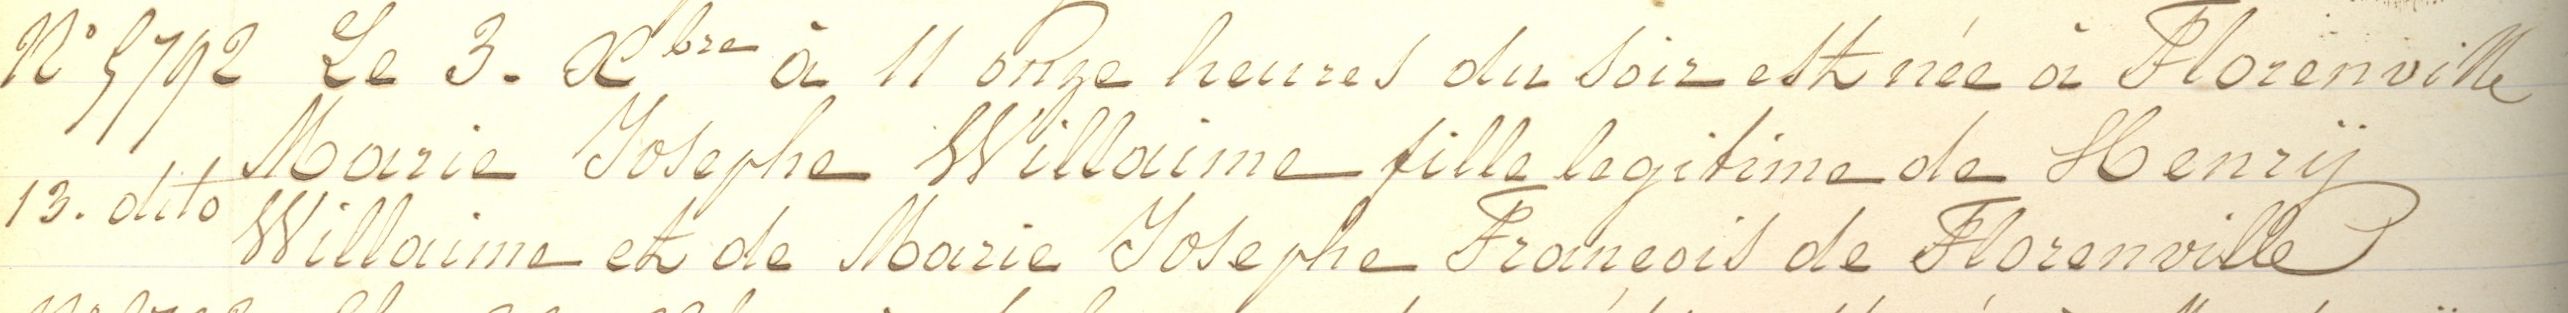 N° 5792 Le 3. Xbre à 11 onze heures du soir est née à Florenville
Marie Josephe Willaime fille legitime de Henrÿ
13. dito Willaime et de Marie Josephe François de Florenville